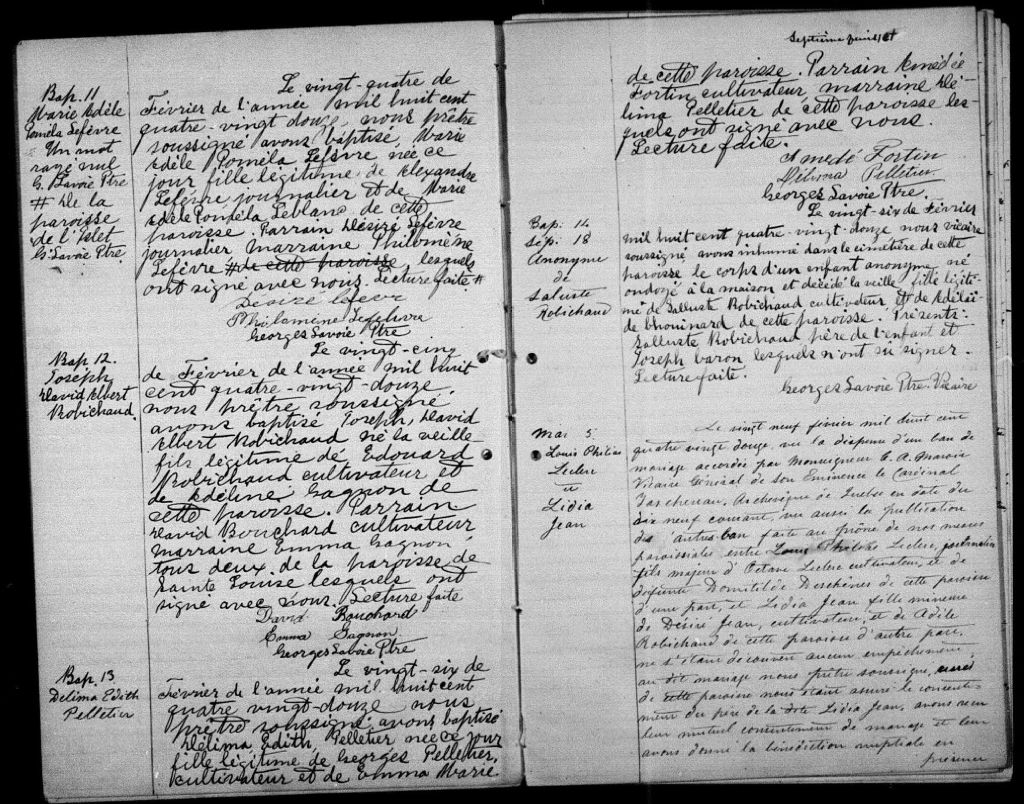 Bap. 11
Marie Adèle
Poméla Lefévre
Un mot
rayé nul
G. Savoie Ptre
# De la
paroisse
de l'Islet
G. Savoie Ptre
Le vingt-quatre de
Février de l'année mil huit cent
quatre-vingt douze, nous prêtre
soussigné avons baptisé, Marie
Adèle Poméla Lefévre, née ce
jour fille légitime de Alexandre
Lefévre, journalier et de Marie
Adèle Poméla Leblanc de cette
paroisse. Parrain Désiré Lefévre
journalier Marraine Philomène
Lefévre # de cette paroisse lesquels
ont signé avec nous. Lecture faite #
Desire lefevr
Philamène Lefebvre
Georges Savoie Ptre
Bap. 12.
Joseph
David Elbert
Robichaud.
Le vingt-cinq
de Février de l'année mil huit
cent quatre-vingt-douze,
nous prêtre soussigné,
avons baptisé Joseph, David
Elbert Robichaud né la veille
fils légitime de Edouard
Robichaud cultivateur et
de Adéline Gagnon de
cette paroisse. Parrain
David Bouchard cultivateur
Marraine Emma Gagnon,
tous deux de la paroisse de
Sainte Louise lesquels ont
signé avec nous. Lecture faite
David Bouchard
Emma Gagnon.
Georges Savoie Ptre
Bap. 13
Delima Edith
Pelletier
Le vingt-six de
Février de l'année mil huit cent
quatre vingt-douze nous
prêtre soussigné avons baptisé
Délima, Edith, Pelletier née ce jour
fille légitime de Georges Pelletier,
cultivateur et de Emma Marie
Septième feuillet
de cette paroisse. Parrain Amédée
Fortin cultivateur, marraine Dé-
lima Pelletier de cette paroisse les-
quels ont signé avec nous.
Lecture faite.
Amedé Fortin
Pelletier
Georges Savoie Ptre.
Bap. 14
Sép. 18
Anonyme
de
Saluste
Robichaud
Le vingt-six de Février
mil huit cent quatre-vingt-douze nous vicaire
soussigné avons inhumé dans le cimetière de cette
paroisse le corps d'un enfant anonyme, né
ondoyé à la maison et décédé la veille fille légiti-
me de Salluste Robichaud cultivateur et de Adélaï-
de Chouinard de cette paroisse. Présents:
Salluste Robichaud père de l'enfant et
Joseph baron lesquels n'ont su signer.
Lecture faite.
Georges Savoie Ptre. Vicaire
Mar. 5
Louis Philias
Leclerc
et
Lidia
Jean
Le vingt neuf février mil huit cent
quatre vingt douze, vu la dispense d'un ban de
mariage accordée par Monseigneur C. A. Marois
Vicaire Général de son Eminence le Cardinal
Taschereau, Archevêque de Québec en date du
dix neuf courant, vu aussi la publication
des autres ban faite au prône de nos messes
paroissiales entre Louis Philias Leclerc, journalier
fils majeur d'Octave Leclerc cultivateur, et de
défunte Domitilde Deschênes de cette paroisse
d'une part, et Lidia Jean fille mineure
de Désiré Jean, cultivateur, et de Adèle
Robichaud de cette paroisse d'autre part,
ne s'étant découvert aucun empêchement
au dit mariage nous prêtre soussigné, curé
de cette paroisse nous étant assuré le consente-
ment du père de la dite Lidia Jean, avons reçu
leur mutuel consentement de mariage et leur
avons donné la bénédiction nuptiale en
présence